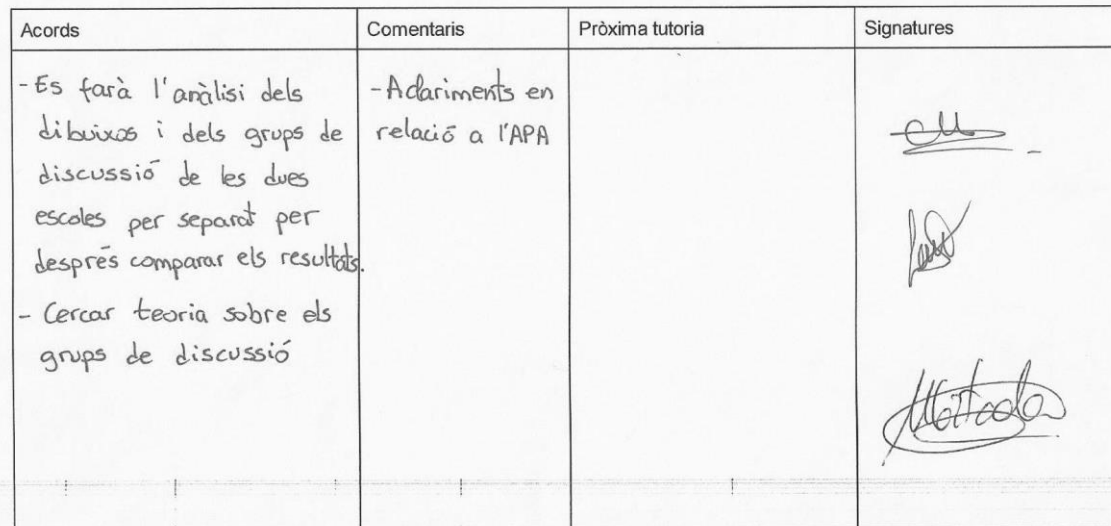 Acords
Comentaris
Pròxima tutoria
Signatures
- Es farà l'anàlisi dels
dibuixos i dels grups de
discussió de les dues
escoles per separat per
després comparar els resultats.
- Cercar teoria sobre els
grups de discussió
- Aclariments en
relació a l'APA